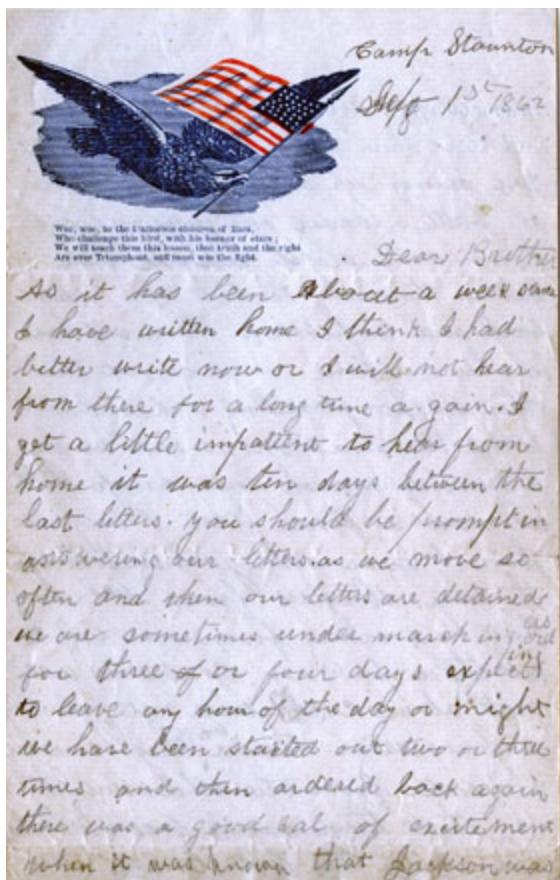 Camp Staunton
Sep 1st 1862
Woe, woe, to the traitorous children of Mars,
Who challenge this bird, with his banner of stars;
We will teach them this lesson, that truth and the right
Are ever Triumphant, and must win the fight.
Dear Brother
As it has been about a week since
I have written home I think I had
better write now or I will not hear
from there for a long time a gain. I
get a little impatient to hear from
home it was ten days between the
last letters. you should be prompt in
answering our letters. as we move so
often and then our letters are detained
we are sometimes under marching
for three of or four days expect
ing
to leave any hour of the day or night
we have been started out two or three
times and then ordered back again
there was a good eal of excitement
when it was known that Jackson was